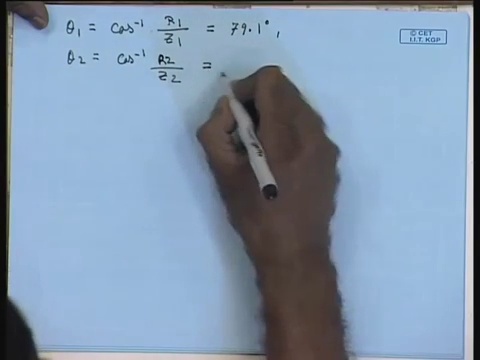 θ₁ = cos⁻¹ R₁/Z₁ = 79.1°,
θ₂ = cos⁻¹ R₂/Z₂ =
© CET
I.I.T. KGP